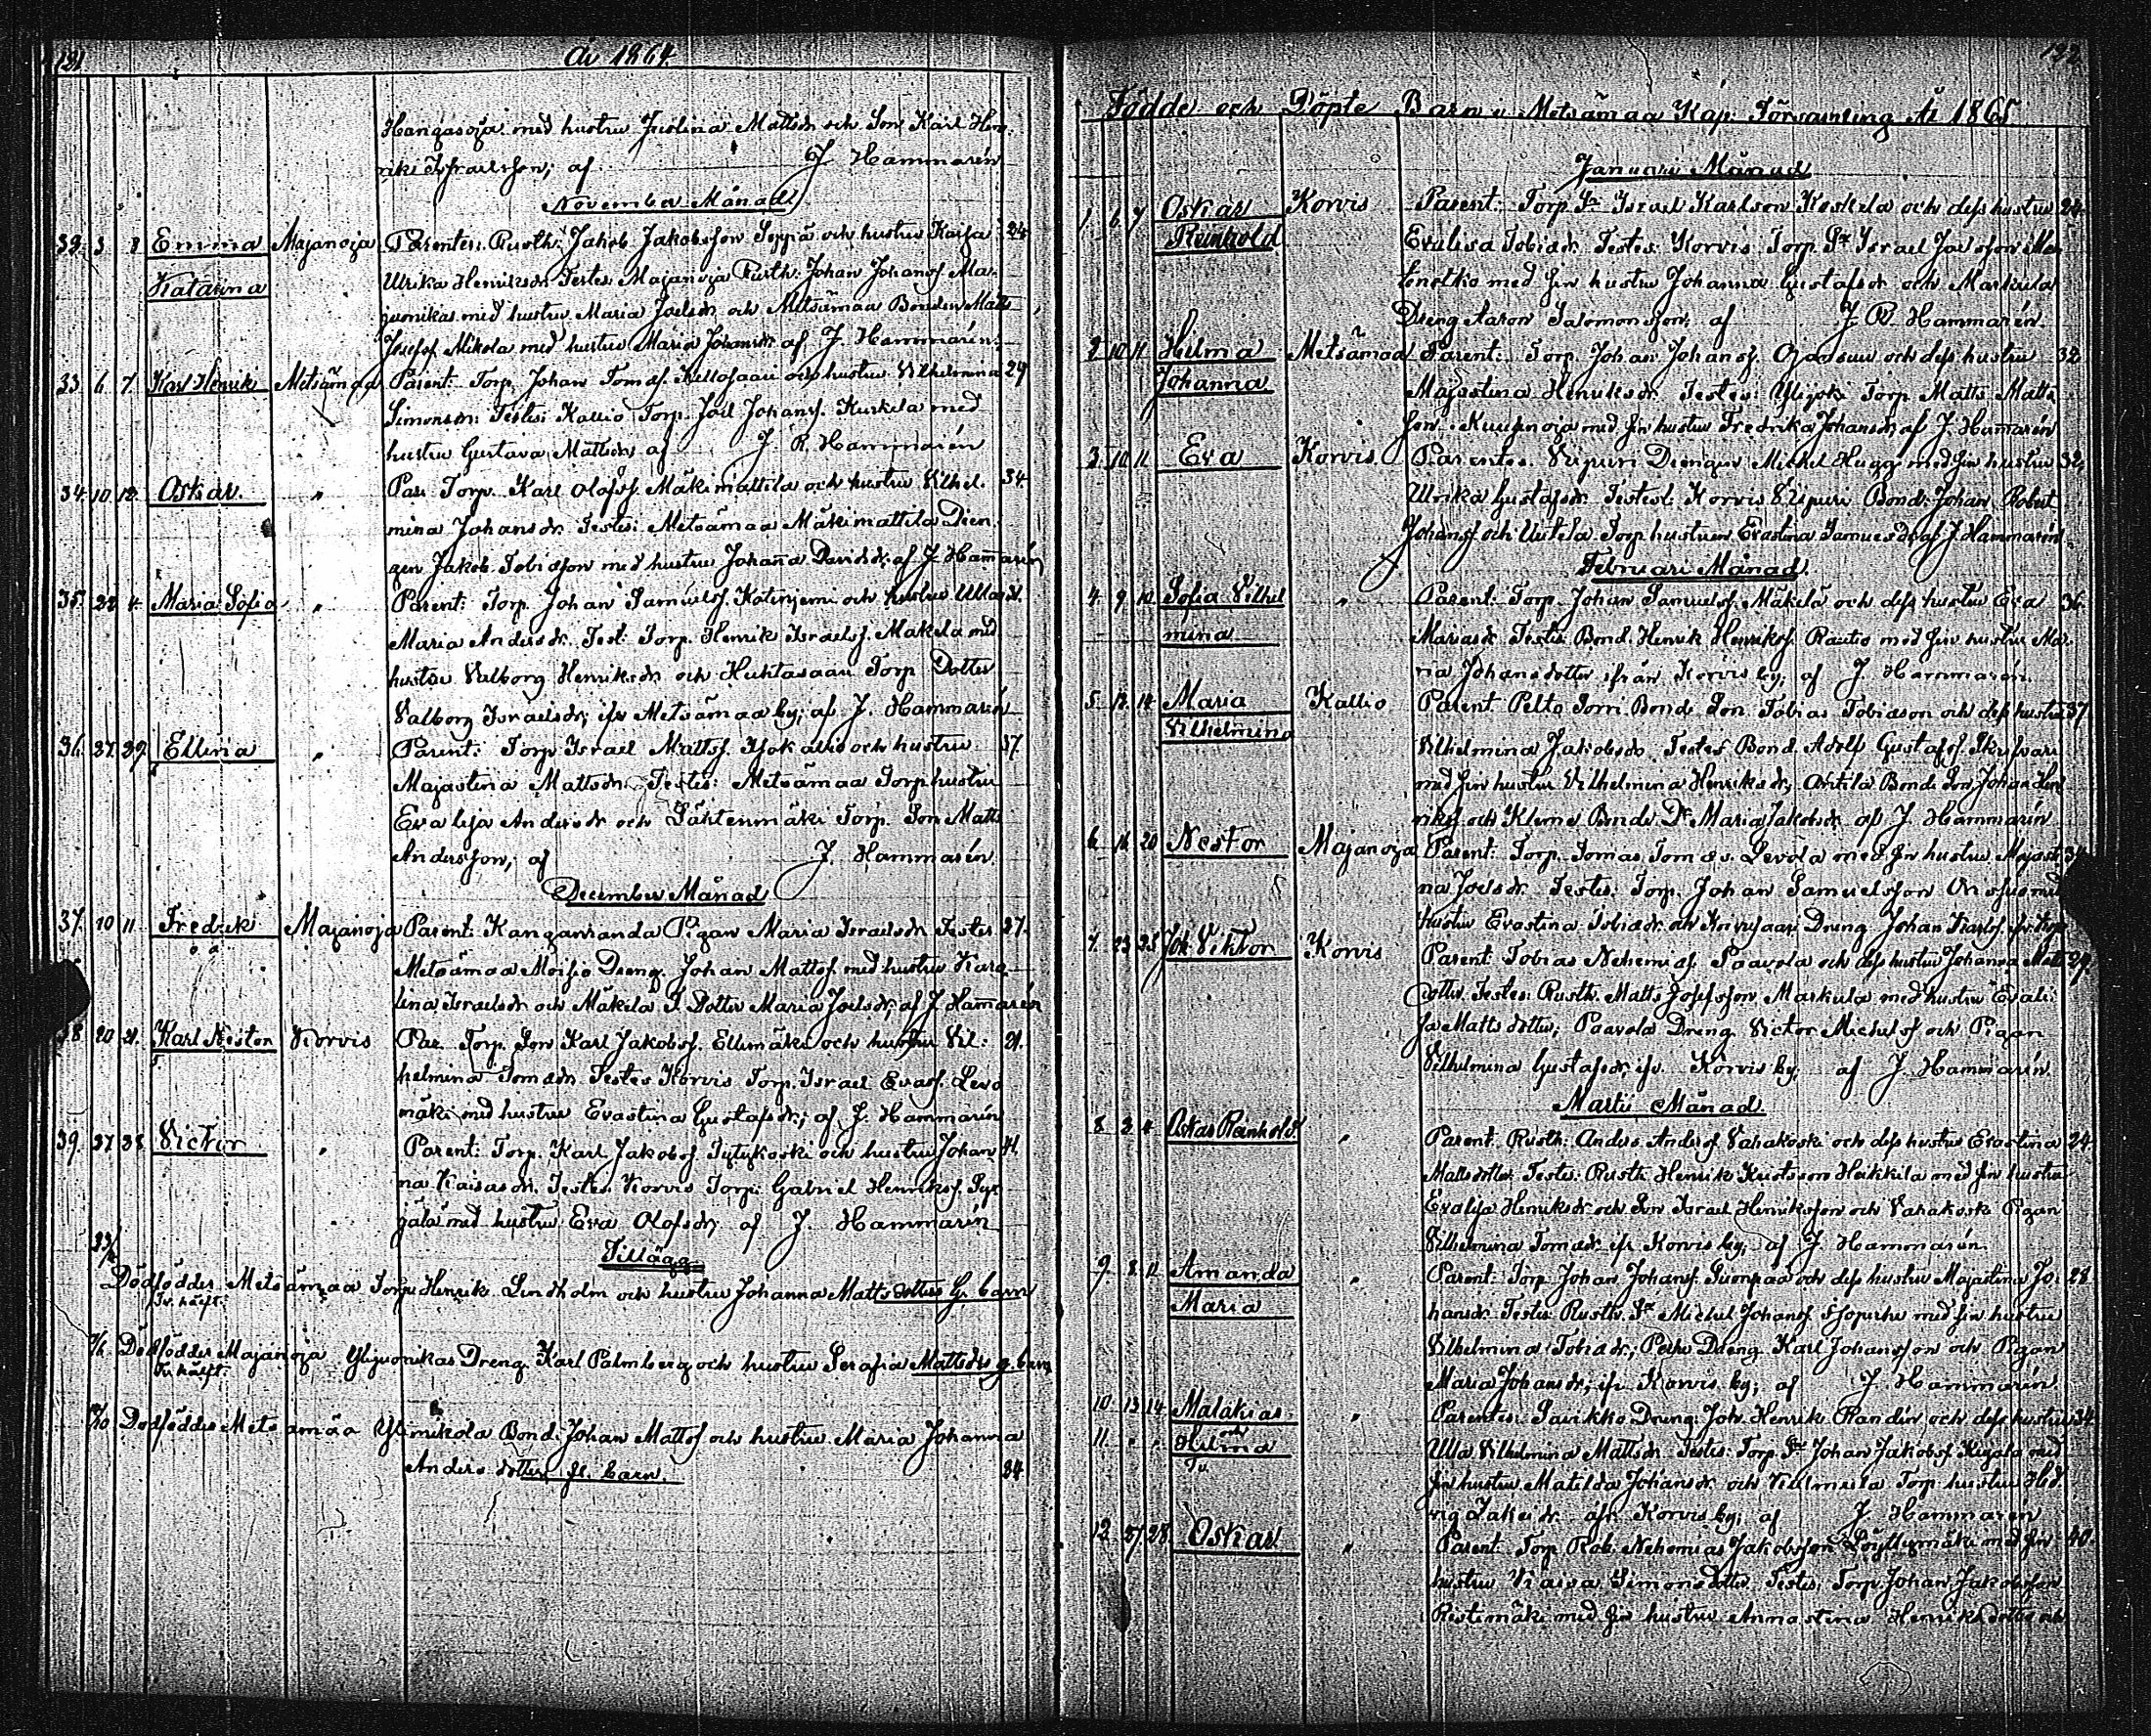 131
År 1864
Hangasoja med hustru Justina Mattsdr och Son Karl Hen-
rik Israelsson; af J Hammarén
November Månad
32. 3 8 Emma Majanoja Parentes: Rusth. Jakob Jakobsson Seppä och hustru Kaisa 24
Katarina Ulrika Henriksdr Testes Majanoja Rusth. Johan Johansf. Ma-
juonikas med hustru Maria Joelsdr och Metsämaa Bonden Matts
Josefsf Mikola med hustru Maria Johansdr af J. Hammarén.
33. 6. 7. Karl Henrik Metsämaa Parent: Torp. Johan Tomasf. Kellosaari och hustru Vilhelmina 29
Simonsdr: Testes: Kallio Torp. Joel Johansf. Kurkela med
hustru Gustava Mattsdr; af J. R. Hammarén
34. 10. 12. Oskar. " Par: Torp. Karl Olofsf. Mäkimattila och hustru Vilhel- 34
mina Johansdr. Testes: Metsämaa Mäkimattila Dren-
gen Jakob Tobiasson med hustru Johanna Davidsdr; af J. Hammarén
35. 22 4. Maria Sofia " Parent: Torp. Johan Samuelsf. Kotiniemi och hustru Ulla
Maria Andersdr. Test: Torp. Henrik Israelsf. Mäkelä med
hustru Valborg Henriksdr och Huhtasaari Torp. Dotter
Valborg Israelsdr; ifr Metsämaa by; af J. Hammarén
36. 27. 29. Ellina " Parent: Torp. Israel Mattsf. Isokallio och hustru 37.
Majastina Mattsdr. Testes: Metsämaa Torp hustru
Eva Lisa Andersdr och Lähtenmäki Torp. Son Matts
Andersson; af J. Hammarén.
December Månad
37. 10 11. Fredrik Majanoja Parent: Kanganranda Pigan Maria Israelsdr. Testes 27.
Metsämaa Moisio Dreng. Johan Mattsf. med hustru Karo-
lina Israelsdr och Mäkelä T. Dotter Maria Joelsdr; af J. Hammarén
38. 20 21. Karl Nestor Korvis Par. Torp. Son Karl Jakobsf. Ellimäki och hustru Vil: 21.
helmina Tomasdr Testes Korvis Torp. Israel Evasf. Levo
mäki med hustru Evastina Gustafsdr; af J. Hammarén
39. 27. 28. Victor " Parent: Torp. Karl Jakobsf. Tytykoski och hustru Johan 41.
na Kaisasdr. Testes Korvis Torp: Gabriel Henriksf. Pyr
jälä med hustru Eva Olofsdr; af J. Hammarén
Tillägg.
Dödföddes Metsämaa Torp Henrik Lindholm och hustru Johanna Mattsdotters G. barn
Dödföddes Majanoja Ylijuonikas Dreng. Karl Palmberg och hustru Serafia Mattsdrs g. barn
Dödföddes Metsämaa Ylimikola Bond. Johan Mattsf och hustru Maria Johanna
Andersdotters fl. barn. 34.
132
Födde och Döpte Barn i Metsämaa Kap: Församling År 1865
Januari Månad
1. 6. 7 Oskar Korvis Parent: Torp. Israel Karlson Koskela och dess hustru 24
Reinhold Evalisa Tobiasdr. Testes: Korvis: Torp. Israel Joelsson
med sin hustru Johanna Gustafsdr och Markula
Dreng Aaron Salomonsson; af J. R. Hammarén.
2. 10. 11. Hilma Metsämaa Parent: Torp. Johan Johansf. Ojansuu och dess hustru 32
Johanna Majastina Henriksdr. Testes: Ylijoki Torp Matts Matts-
son Kuusinoja med sin hustru Fredrika Johansdr; af J. Hammarén
3. 10. 11. Eva Korvis. Parentes: Viipuri Drengen Mikhel Hugg med sin hustru 32.
Ulrika Gustafsdr. Testes: Korvis Viipuri Bond: Johan Robert
Johansf och Uutela Torp hustrun Evastina Samuelsdr af J. Hammarén.
Februari Månad.
4. 9. 12. Sofia Vilhel " Parent: Torp. Johan Samuelsf. Mäkelä och dess hustru Eva 36.
mina Mariasdr. Testes: Bond. Henrik Henriksf. Rautio med sin hustru Ma-
ria Johansdotter ifrån Korvis by; af J. Hammarén.
5. 12. 14. Maria Kallio Parent Pelto Bonde Son Tobias Tobiason och dess hustru 37.
Vilhelmina Vilhelmina Jakobsdr. Testes Bond. Adolf Gustafsf.
med sin hustru Vilhelmina Henriksdr, Anttila Bonde Son Johan Hen
riksf och Klemo Bonde Dr. Maria Jakobsdr, af J. Hammarén
6. 16. 20 Nestor Majanoja Parent: Torp. Tomas Tomass. Levola med sin hustru Majasti-
na Joelsdr. Testes: Torp. Johan Samuelsson med
hustru Evastina Tobiasdr och Koivusaari Dreng Johan Karlsf.
7. 23 25 Joh. Viktor Korvis Parent: Tobias Nehemiasf. Paavola och dess hustru Johanna Matts 29.
dotter. Testes: Rusth. Matts Josefsson Markula med hustru Evali-
sa Mattsdotter; Paavola Dreng. Victor Michelsf och Pigan
Vilhelmina Gustafsdr, ifr Korvis by; af J. Hammarén.
Martii Månad.
8. 2 4. Oskar Reinhold " Parent: Rusth: Anders Andersf Vahakoski och dess hustru Evastina 24.
Mattsdotter. Testes: Rusth Henrik Kustsson Heikkilä med sin hustru
Evalisa Henriksdr och Son Israel Henriksson och Vahakoski Pigan
Vilhelmina Tomasdr ifr Korvis by; af J. Hammarén.
9. 8. 12. Amanda " Parent: Torp. Johan Johansf. Suonpaa och dess hustru Majastina Jo- 28
Maria hansdr Testes: Rusth. Michel Johansf. med sin hustru
Vilhelmina Tobiasdr; Dreng. Karl Johansson och Pigan
Maria Johansdr, ifr Korvis by; af J. Hammarén.
10. 13 14. Malakias " Parentes: Savikko Dreng: Joh. Henrik Randén och dess hustru 34.
11. " " och Hilma Tv. Ulla Vilhelmina Mattsdr Testes: Torp. Johan Jakobsf. med
sin hustru Matilda Johansdr och Torp hustru Hed-
vig af Korvis by; af J Hammarén
12. 27. 28. Oskar " Parent: Torp Rob. Nehemias Jakobsson Löyttymäki med sin 40.
hustru Kaisa Simonsdotter. Testes; Torp. Johan Jakobsson
Ristimäki med sin hustru Annastina Henriksdotter och